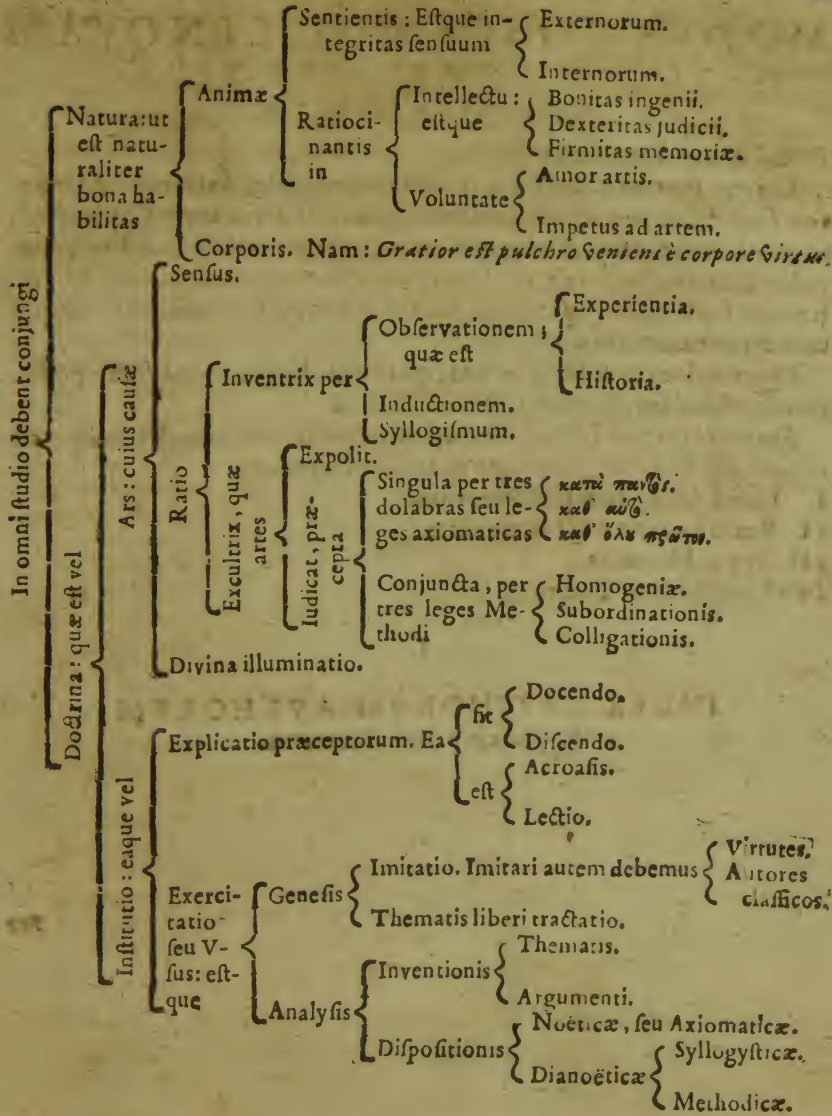 In omni ſtudio debent conjungi
Natura: ut
eſt natu-
raliter
bona ha-
bilitas
Animæ
Sentientis : Eſtque in-
tegritas ſenſuum
Externorum.
Internorum.
Ratioci-
nantis
in
Intellectu :
eſtque
Bonitas ingenii.
Dexteritas judicii.
Firmitas memoriæ.
Voluntate
Amor artis.
Impetus ad artem.
Corporis. Nam : Gratior eſt pulchro veniens è corpore virtus.
Doctrina : quæ eſt vel
Ars : cuius cauſæ
Senſus.
Ratio
Inventrix per
Obſervationem ;
quæ eſt
Experientia.
Hiſtoria.
Inductionem.
Syllogiſmum.
Excultrix, quæ
artes
Expolit.
Iudicat, præ-
cepta
Singula per tres
dolabras ſeu le-
ges axiomaticas
κατὰ παντὸς.
καθ' αὑτὸ.
καθ' ὅλου πρῶτον.
Conjuncta, per
tres leges Me-
thodi
Homogeniæ.
Subordinationis.
Colligationis.
Divina illuminatio.
Inſtitutio : eaque vel
Explicatio præceptorum. Ea
fit
Docendo.
Diſcendo.
eſt
Acroaſis.
Lectio.
Exerci-
tatio
ſeu V-
ſus: eſt-
que
Geneſis
Imitatio. Imitari autem debemus
Virtutes.
Autores
claſſicos.
Thematis liberi tractatio.
Analyſis
Inventionis
Thematis.
Argumenti.
Diſpoſitionis
Noëticæ, ſeu Axiomaticæ.
Dianoëticæ
Syllogyſticæ.
Methodicæ.